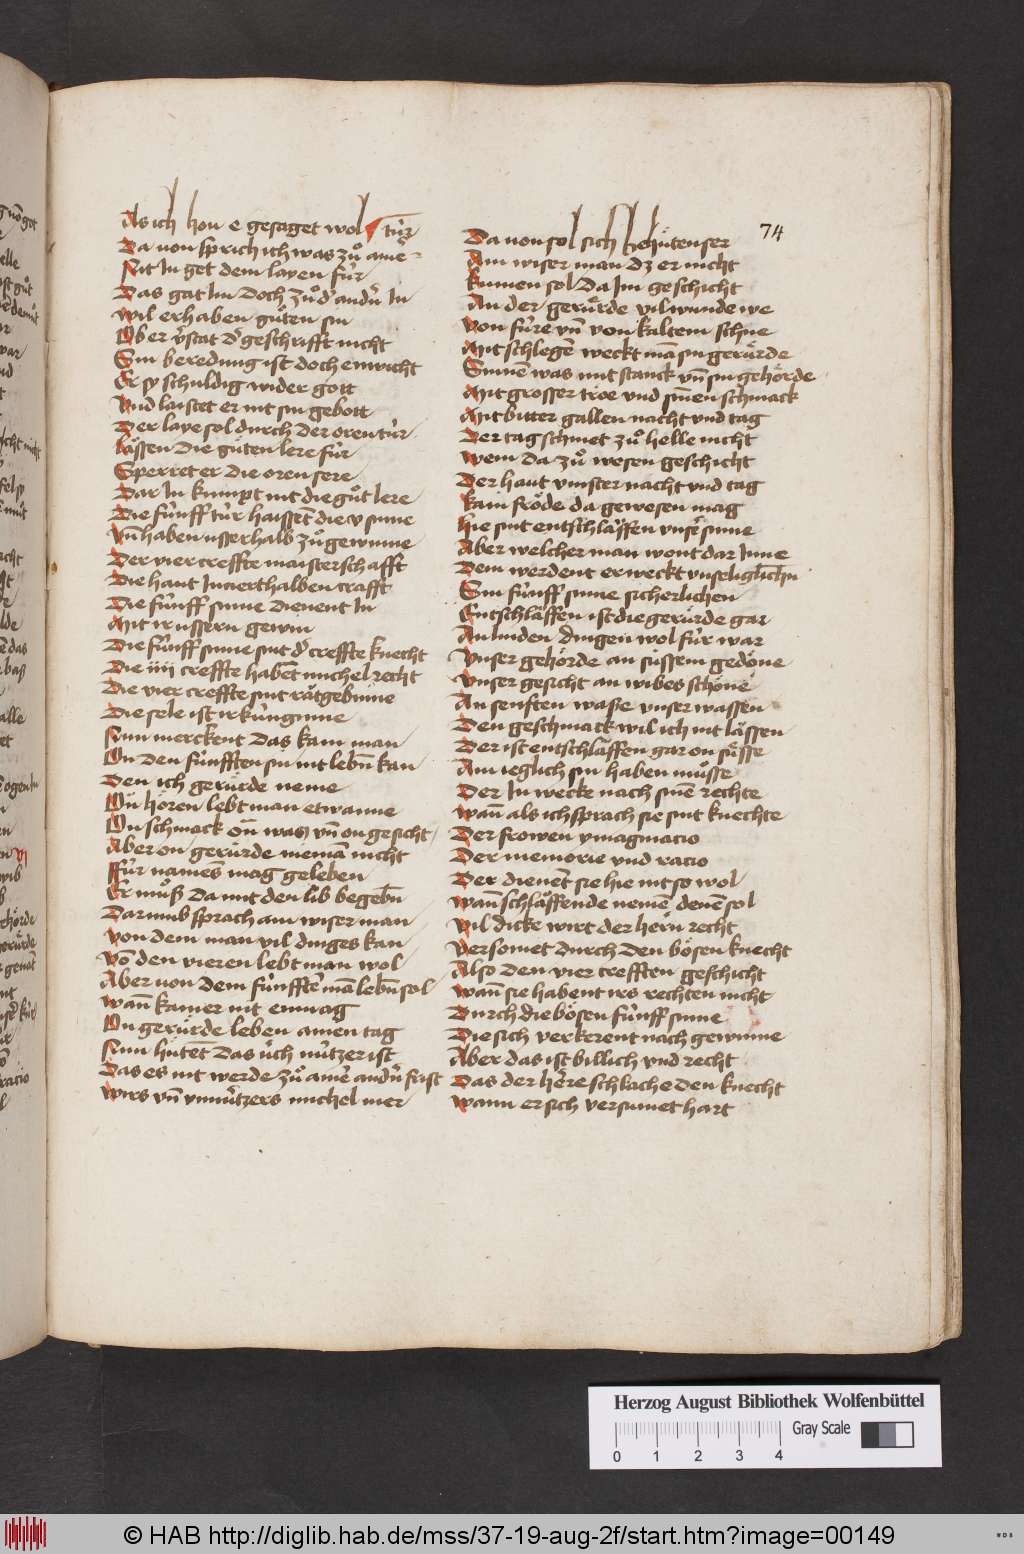 Als ich hon e gesaget wol
tür
Da von sprich ich was zuͦ aine
Nit In get dem layen für
Das gat im doch zuͦ d' andn̄ In
wil er haben guͤten sin
Ob er v̾stat d' geschrifft nicht
Sin beredung ist doch enwicht
Er sy schuldig wider gott
Vnd laistet er nit sin gebott
Der laye sol durch der oren tür
lässen die guͤten lere für
Sperret er die oren sere
Dar In kumpt nit die guͦt lere
Die fünff tür haissēt die v sinne
Vn̄ haben usserhalb zuͦ gewinne
Der vier creffte maisterschafft
Die hant Innerthalben crafft
Die fünff sinne dienent In
Mit ir ussern gewin
Die fünff sinne sint d' creffte knecht
Die iiii creffte habēt michel recht
Die vier creffte sint rätgebinne
Die sele ist ir künginne
Nun merckent das kain man
On den fünfften sin nit lebn̄ kan
Den ich gerürde neme
On hören lebt man etwanne
On schmack on̄ was vn̄ on gesicht
Aber on gerürde niemā nicht
Für namēs mag geleben
Er muͦß da mit den lib begebn̄
Darumb sprach ain wiser man
Von dem man vil dinges kan
Vō den vieren lebt man wol
Aber von dem fünfftē mā lebn̄ sol
Wan̄ kainer nit enmag
On gerürde leben ainen tag
Nun hütēt das üch nützer ist
Das es nit werde zuͦ ainē andn̄ frist
Wirs vn̄ vnnützers michel mer
74
Da von sol sich behütenser
Ain wiser man dz er nicht
kumen sol da Im geschicht
An der gerürde vil wunde we
Von füre vn̄ von kaltem schne
Mit schlegē weckt mā sin gerürde
Sinnē was mit stanck vn̄ sin gehörde
Mit grosser tröe und sinen schmack
Mit bitter gallen nacht vnd tag
Der tag schinet zuͦ helle nicht
Wem da zuͦ wesen geschicht
Der haut vinster nacht vnd tag
kain fröde da gewesen mag
Hie sint entschläffen vnse sinne
Aber welcher man wont dar Inne
Dem werdent erweckt vnseliglichn̄
Sin fünff sinne sicherlichen
Entschläffen ist die gerürde gar
An linden dingen wol für war
Vnser gehörde an süssem gedöne
Vnser gesicht an wibes schöne
An senften wase vnser wassen
Den geschmack wil ich nit lässen
Der ist entschlāffen gar on süsse
Ain ieglich sin haben müsse
Der In wecke nach sinē rechte
Wan̄ als ich sprach sie sint knechte
Der frowen ymaginacio
Der memorie vnd racio
Der dienet sie hie nit so wol
Wan̄ schläffende nemē denē sol
Vil dicke wirt der hern recht
Versomet durch den bösen knecht
Also den vier crefften geschicht
Wan̄ sie habent irs rechten nicht
Durch die bösen fünff sinne
Die sich verkerent nach gewinne
Aber das ist billich vnd recht
Das der hēre schlache den knecht
Wann er sich versumet hart
Herzog August Bibliothek Wolfenbüttel
Gray Scale
0 1 2 3 4
© HAB http://diglib.hab.de/mss/37-19-aug-2f/start.htm?image=00149